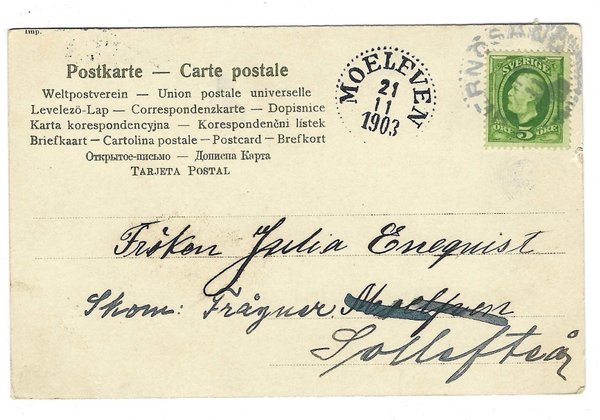 Imp.
Postkarte — Carte postale
Weltpostverein — Union postale universelle
Levelező-Lap — Correspondenzkarte — Dopisnice
Karta korespondencyjna — Korespondenční lístek
Briefkaart — Cartolina postale — Postcard — Brefkort
Открытое-письмо — Дописна Карта
TARJETA POSTAL
MOELFVEN
21
11
1903
SVERIGE
ÖRE 5 ÖRE
Fröken Julia Enequist
Skom: Frågner
Sollefteå